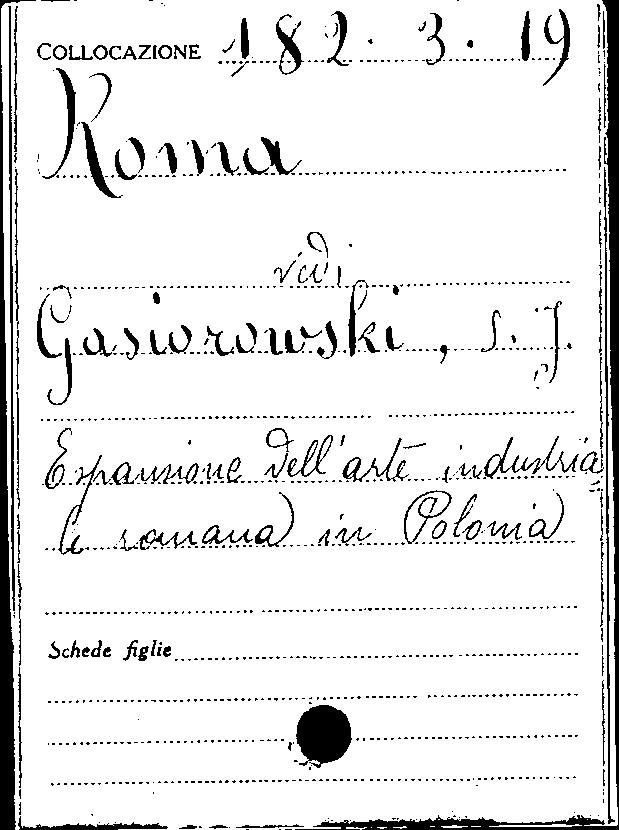 COLLOCAZIONE 182. 3. 19
Roma
vedi
Gasiorowski, S. J.
Espansione dell'arte industria
le romana in Polonia
Schede figlie